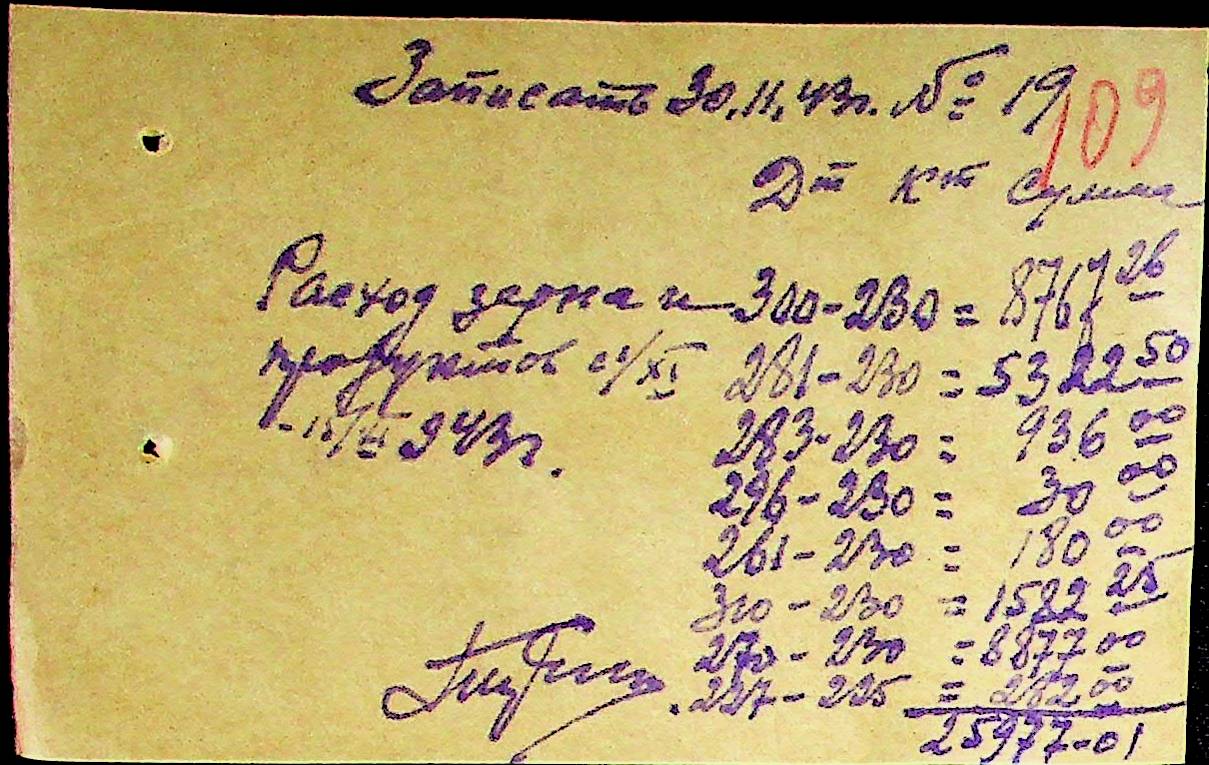 Записать 30.11.43г. № 19
109
Дт Кт Сумма
Расход зерна и 300-230 = 8767 26
продуктов с 1/XI 281-230 = 5322 50
-15/XI 943г. 283-230 = 936 00
296-230 = 30 00
261-230 = 180 00
310-230 = 1582 25
270-230 = 8877 00
227-225 = 282 00
25977-01